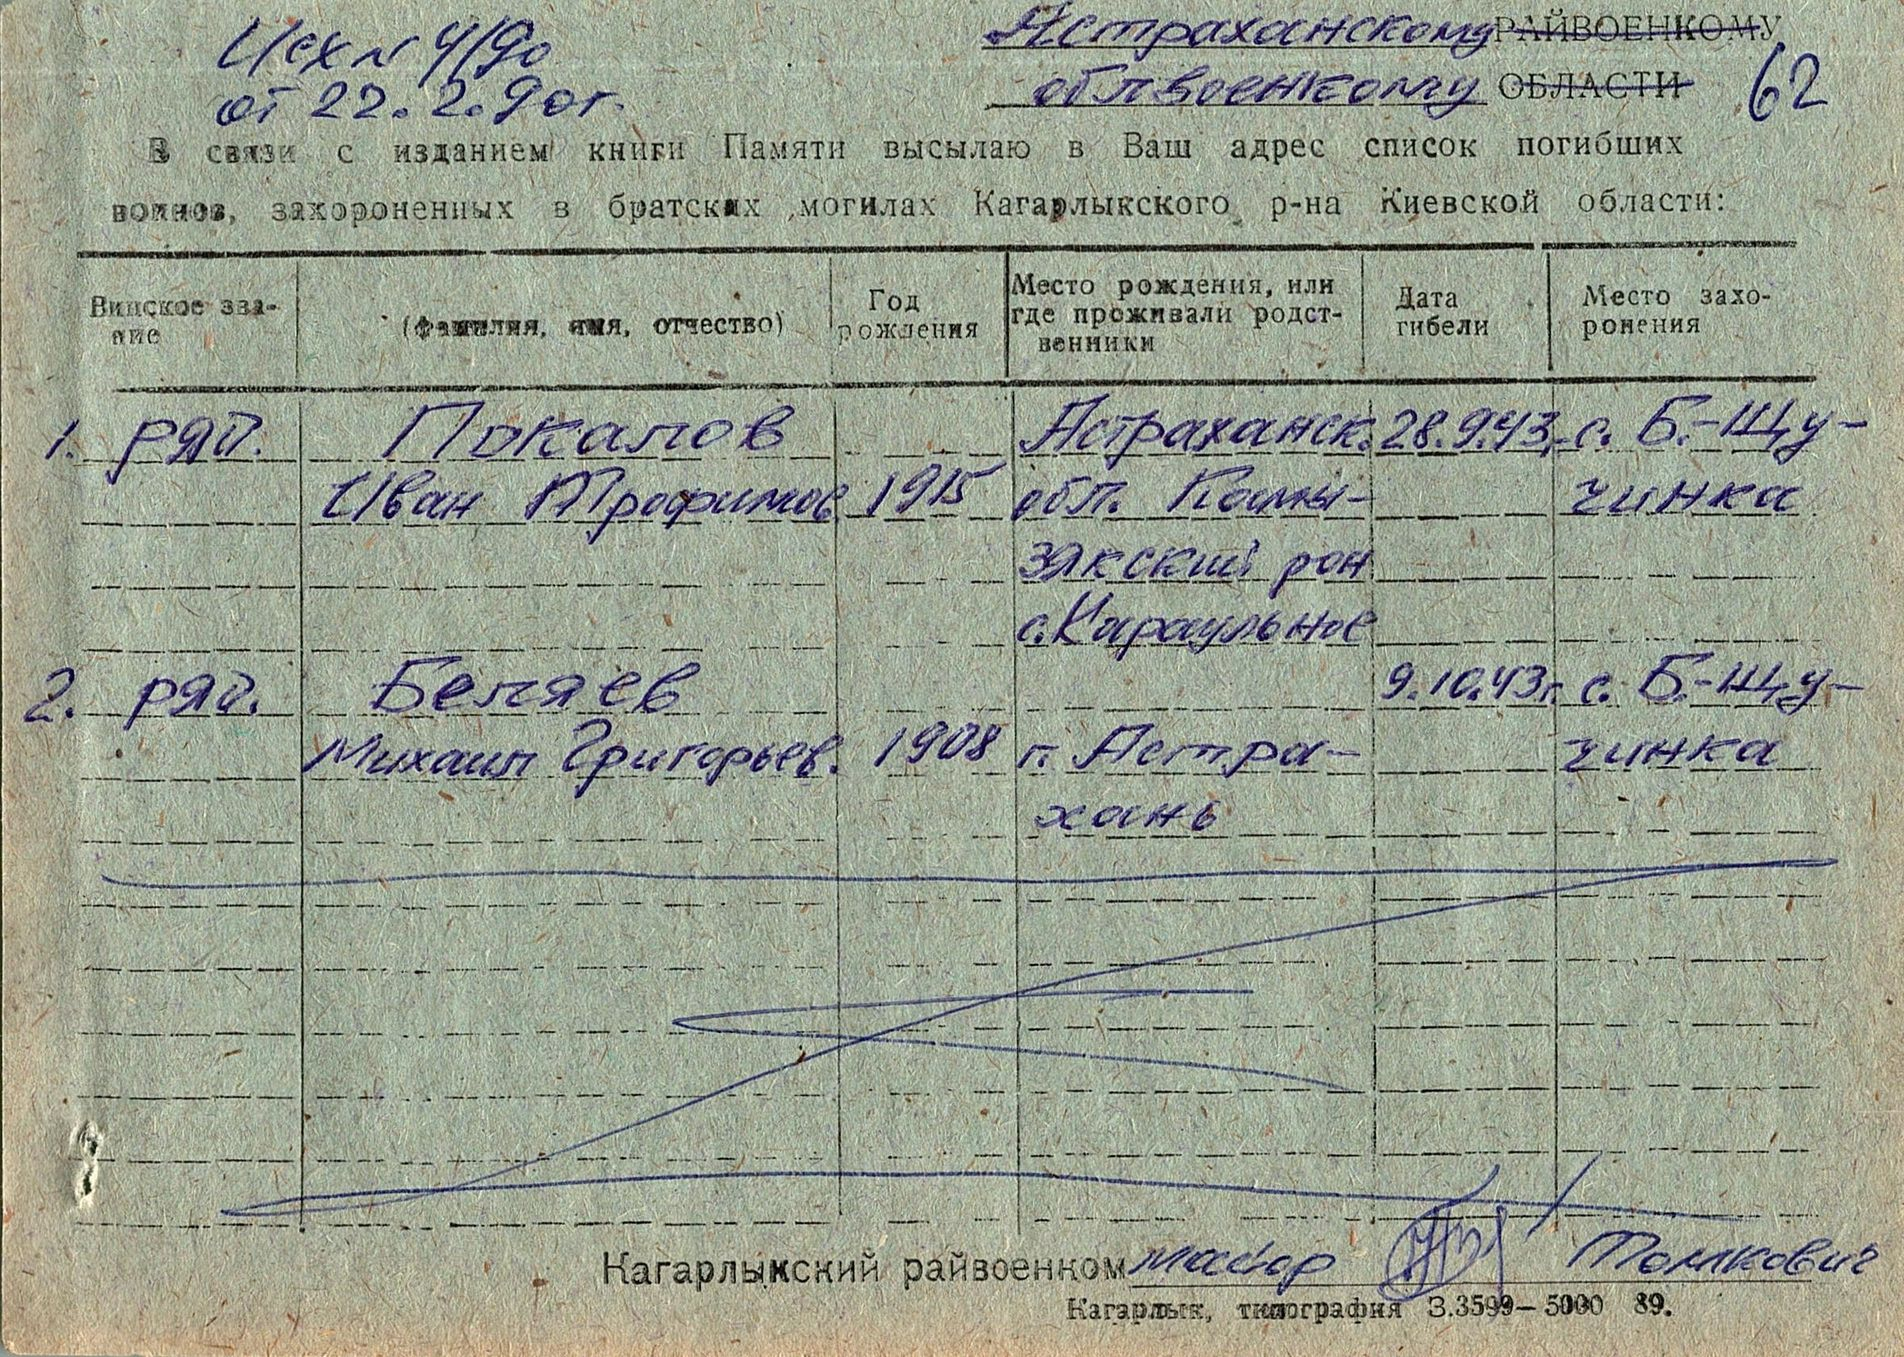 Исх N 4/90
от 22.2.90г.
Астраханскому РАЙВОЕНКОМУ
облвоенкому ОБЛАСТИ
62
В связи с изданием книги Памяти высылаю в Ваш адрес список погибших
воинов, захороненных в братских могилах Кагарлыкского р-на Киевской области:
Винское зва-
ние
(фамилия, имя, отчество)
Год
рождения
Место рождения, или
где проживали родст-
венники
Дата
гибели
Место захо-
ронения
1. ряд. Покалов Астраханск. 28.9.43. с. Б.-Щу-
Иван Трофимов 1915 обл. Камы- чинка
зякский рон
с. Караульное
2. ряд. Беляев 9.10.43г. с. Б.-Щу-
Михаил Григорьев. 1908 г. Астра- чинка
хань
Кагарлыкский райвоенком майор Томкович
Кагарлык, типография З.3599—5000 89.